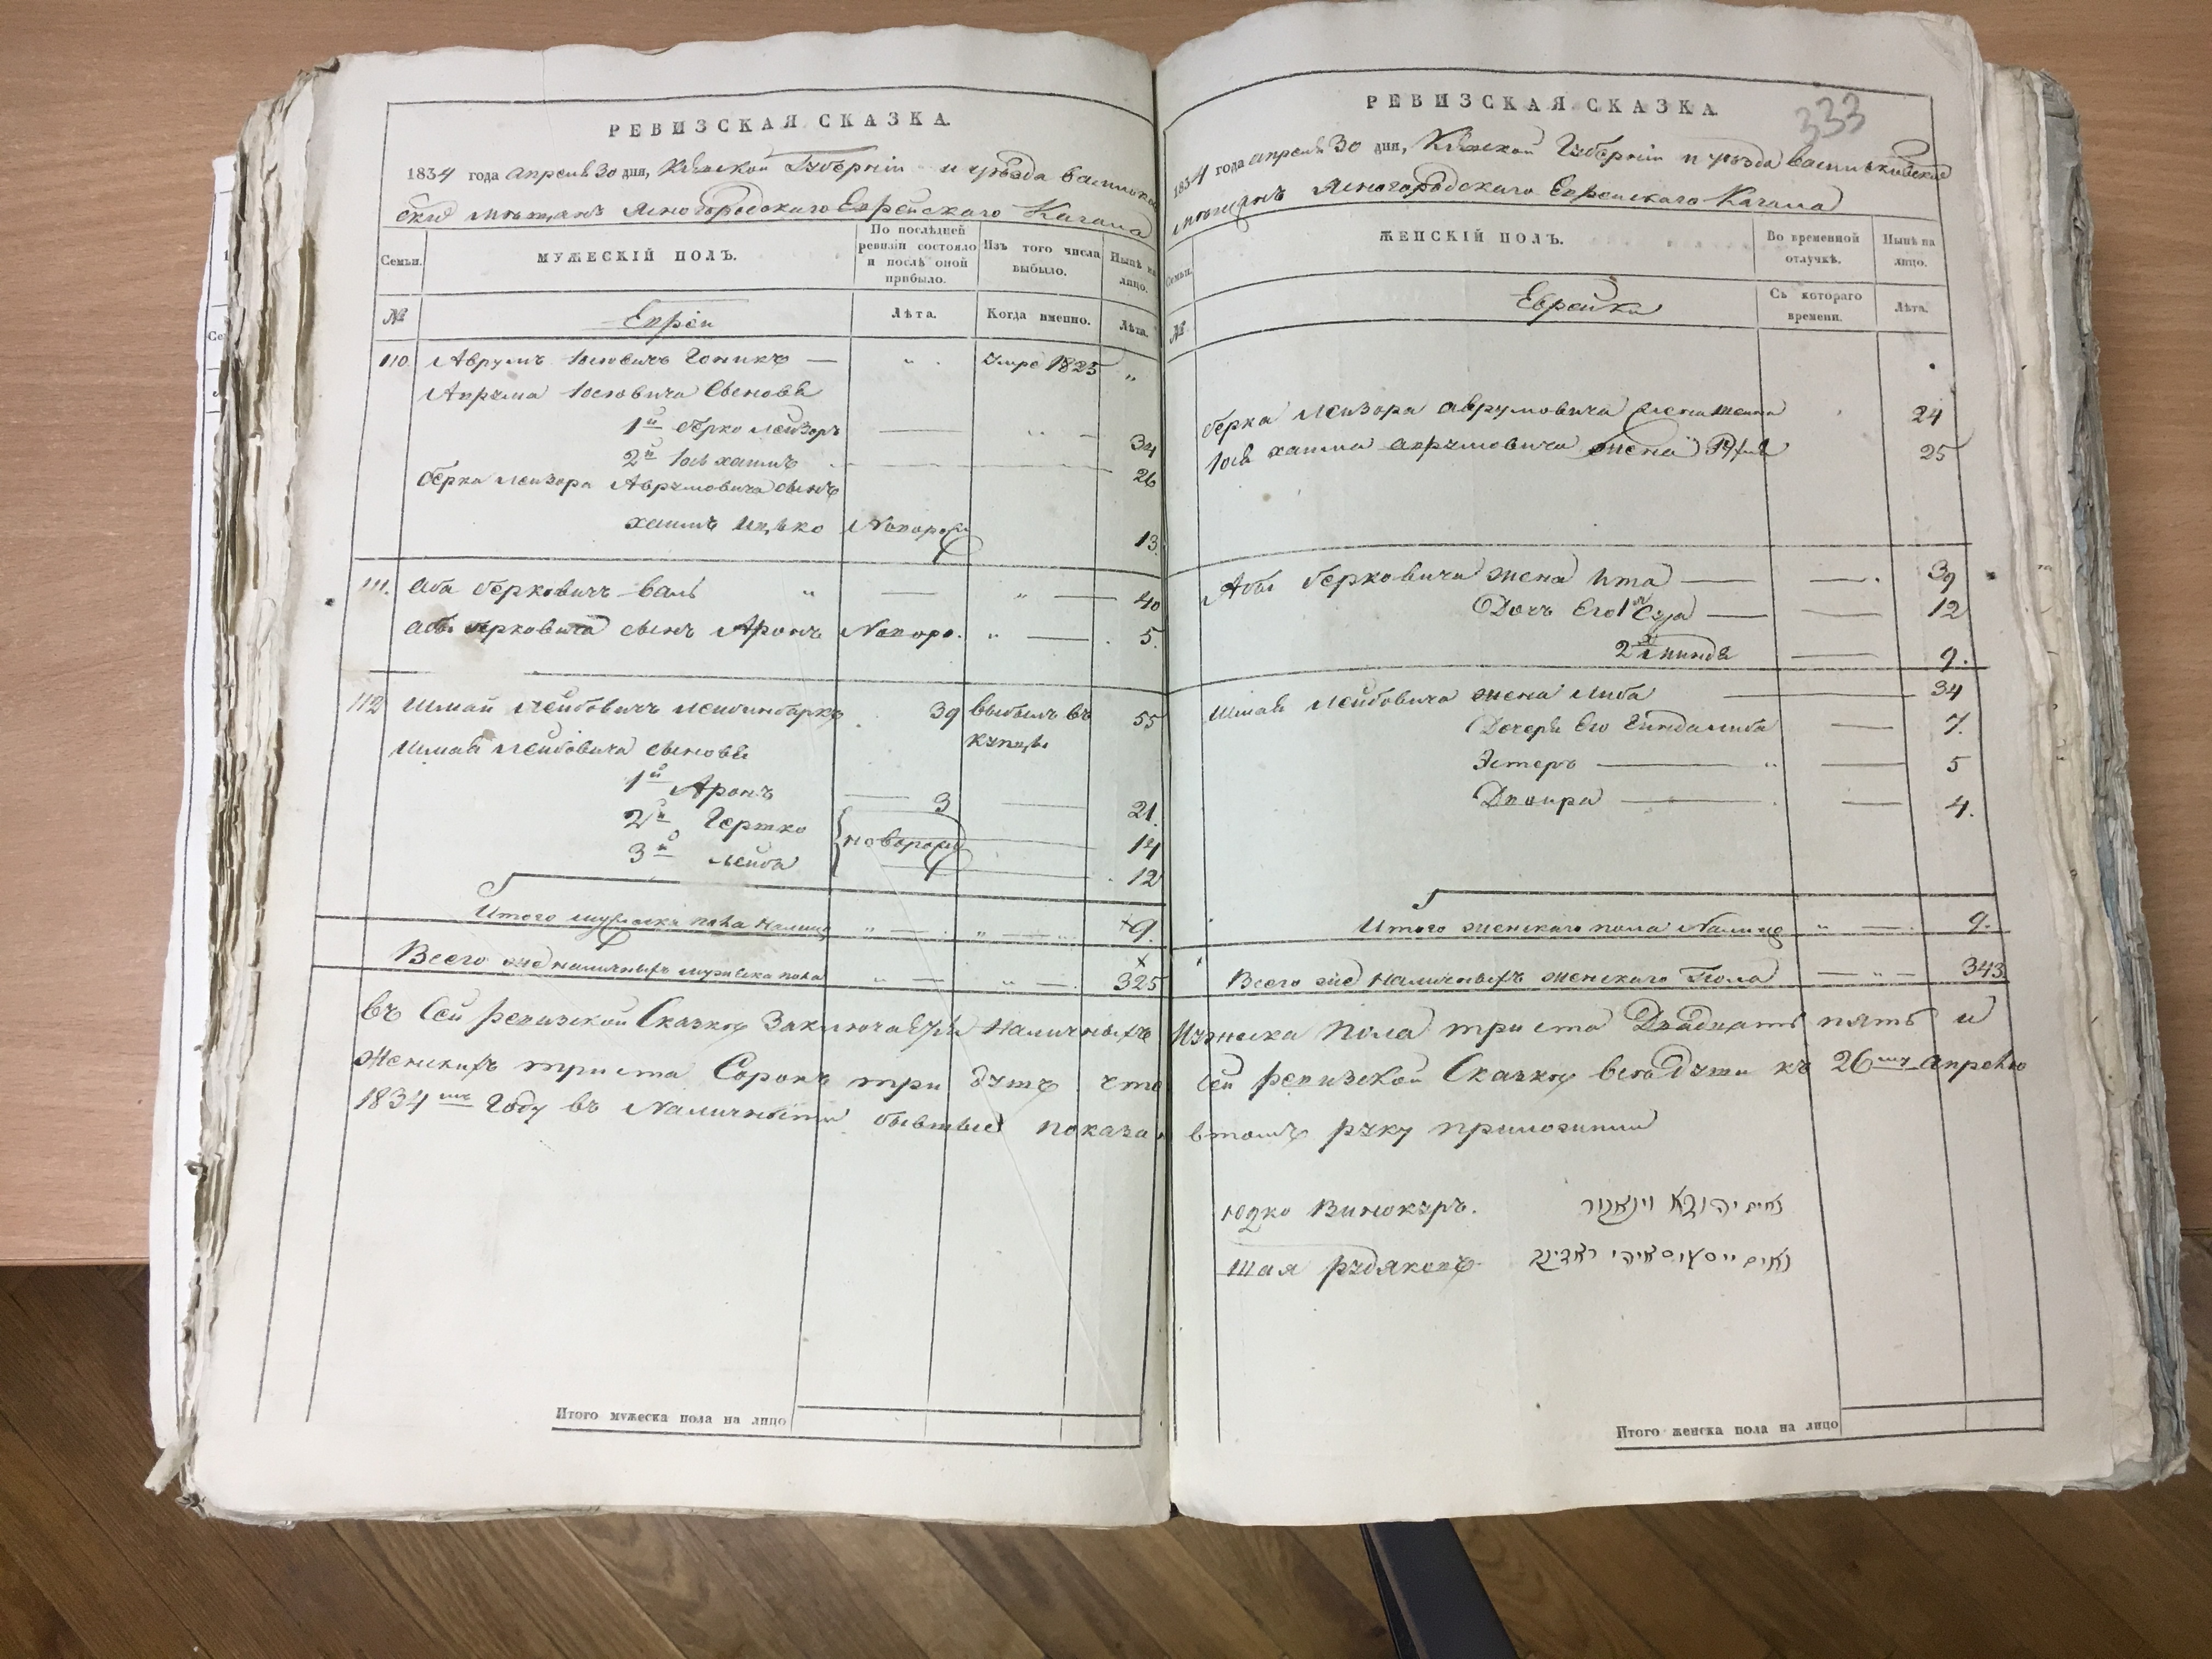 РЕВИЗСКАЯ СКАЗКА.
1834 года апреля 30 дня, Кіевской Губерніи и уѣзда Васильков
скіе мѣщанъ Ясногородскаго Еврейскаго Кагала
Семьи.
МУЖЕСКІЙ ПОЛЪ.
По послѣдней ревизіи состояло и послѣ оной прибыло.
Изъ того числа выбыло.
Нынѣ на лицо.
№
Евреи
Лѣта.
Когда именно.
Лѣта.
110. Аврумъ Іосіовичъ Гоникъ — " Умре 1825 "
Аврума Іосіовича сыновья
1й Берко Лейзоръ — " — 34
2й Іось Хаимъ 26
Берка Лейзора Аврумовича сынъ
Хаимъ Ицько Новорож 13.
111. Аба Берковичъ Валъ " — " — 40
Абы Берковича сынъ Аронъ Новоро. " — 5.
112 Шмай Лейбовичъ 39 выбылъ въ 55
купцы
Шмая Лейбовича сыновья
1й Аронъ — 3 — 21.
2й Гершко новорож 14
3й Лейба 12
Итого мужеска пола налицо " — " — 9.
Всего же наличныхъ мужеска пола " — " — 325
РЕВИЗСКАЯ СКАЗКА.
333
1834 года апреля 30 дня, Кіевской Губерніи и уѣзда Васильковские
мѣщанъ Ясногородскаго Еврейскаго Кагала
Семьи.
ЖЕНСКІЙ ПОЛЪ.
Во временной отлучкѣ.
Нынѣ на лицо.
№
Еврейки
Съ котораго времени.
Лѣта.
Берка Лейзора Аврумовича жена 24
Іося Хаима Аврумовича жена 25
Абы Берковича жена Ита — — 39
Дочь его 1я — — 12
2я — 9.
Шмая Лейбовича жена Либа — 34
Дочери его Гиндалиба — 7.
Эстеръ — " — 5
Двойра — — 4.
Итого женскаго пола налицо " — 9.
Всего же наличныхъ женскаго пола — " — 343.
Въ сей ревизской сказкѣ заключается наличныхъ мужеска пола триста двадцать пять и
женскихъ триста сорокъ три душъ что сей ревизской сказкѣ все души къ 26му апрелю
1834му году въ наличности бывшые показа въ томъ руку приложили
Юдко Винокуръ. נאום יהודא
Шая Рудяковъ נאום
Итого мужеска пола на лицо
Итого женска пола на лицо